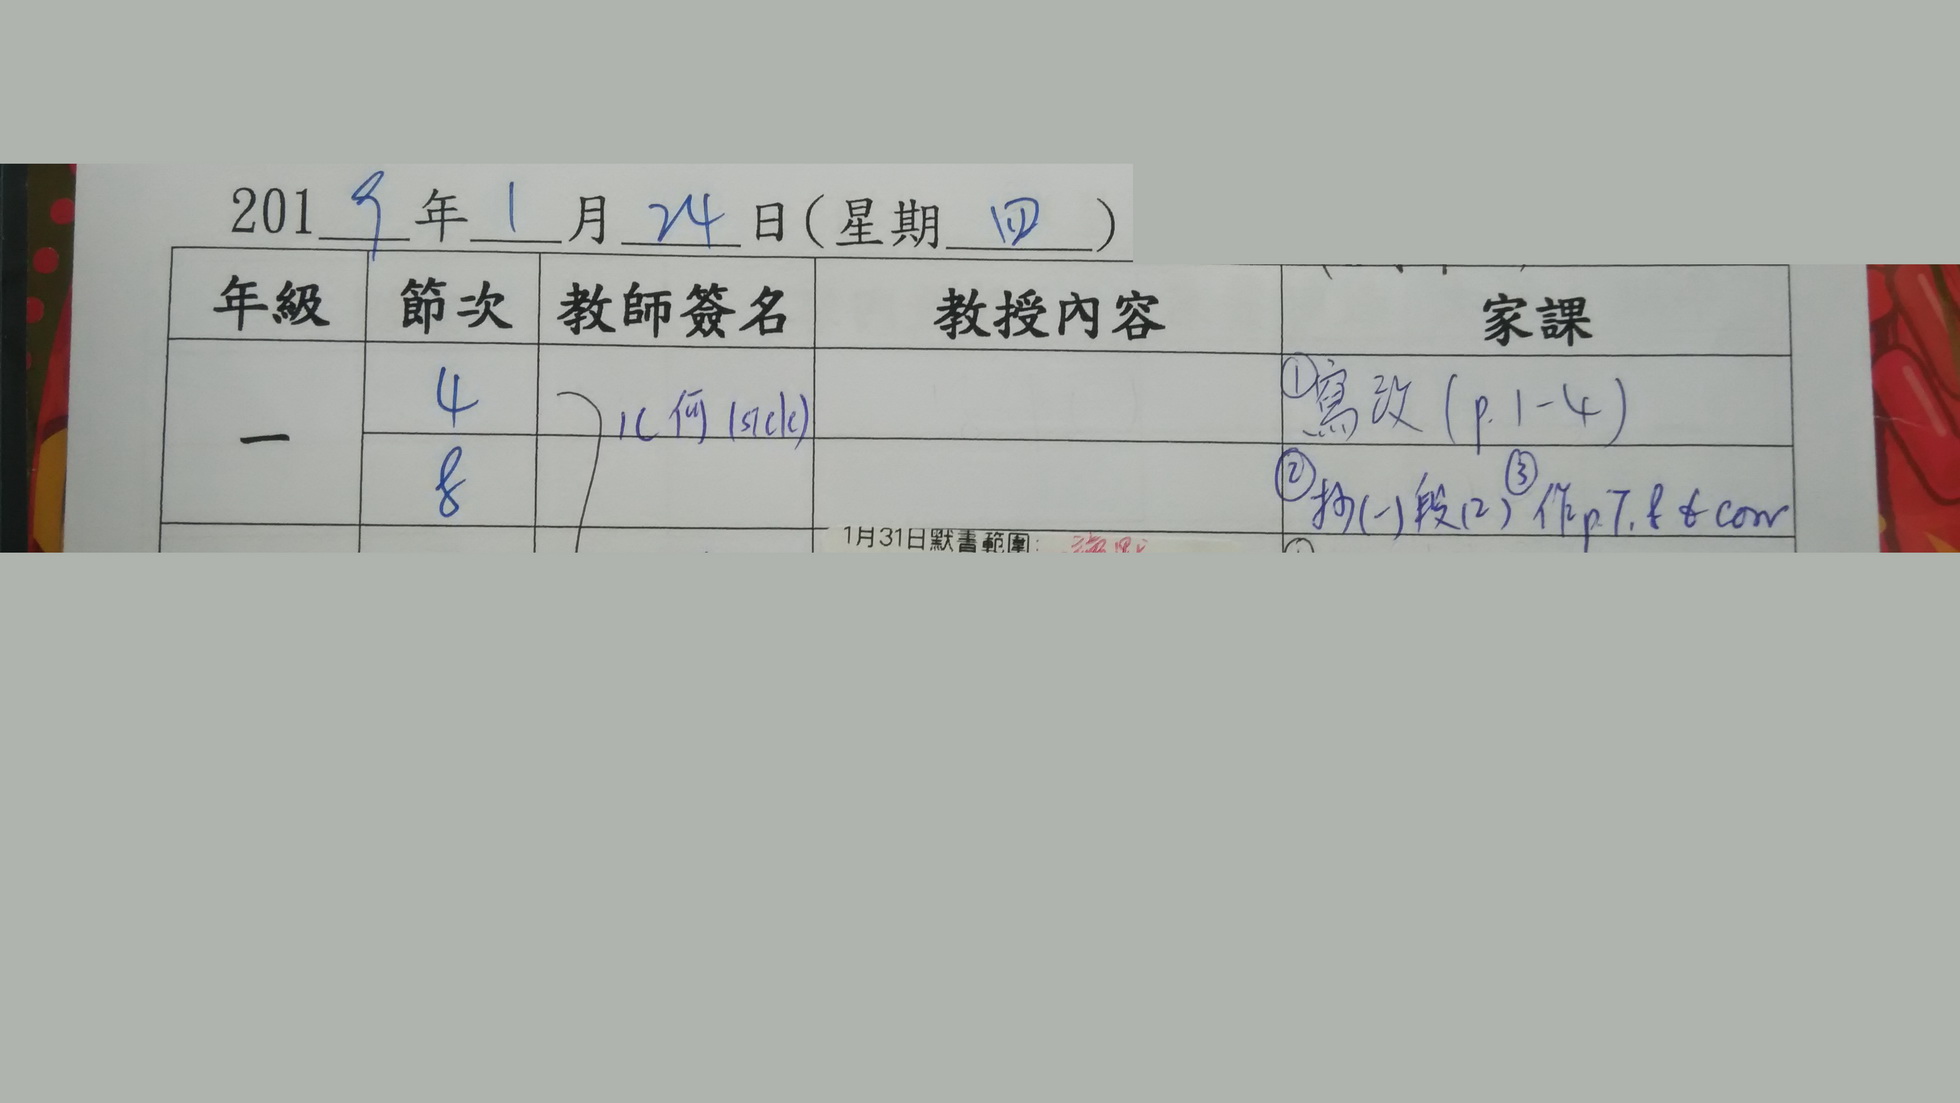 2019年1月24日(星期四)
年級 節次 教師簽名 教授內容 家課
一 4 1C何(sick) ①寫改(p.1-4)
8 ②抄(一)段(2) ③作p.7,8 & corr
1月31日默書範圍: